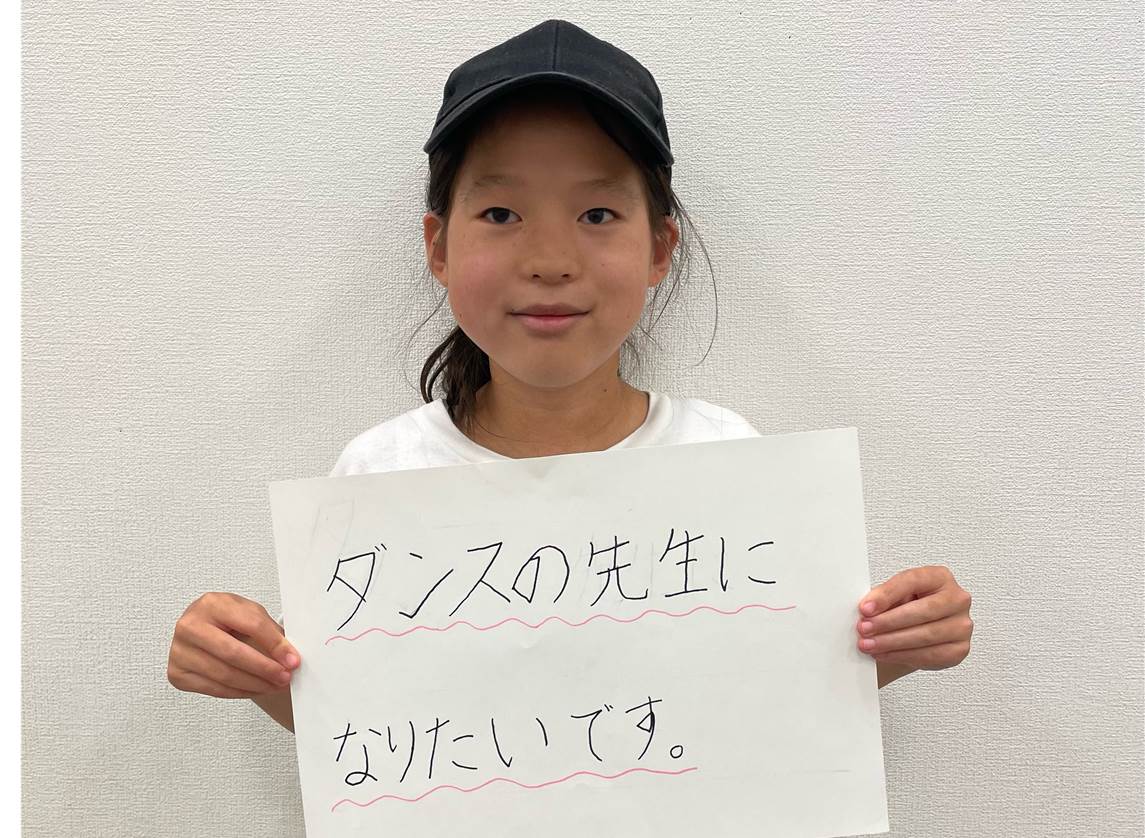 ダンスの先生に
なりたいです。